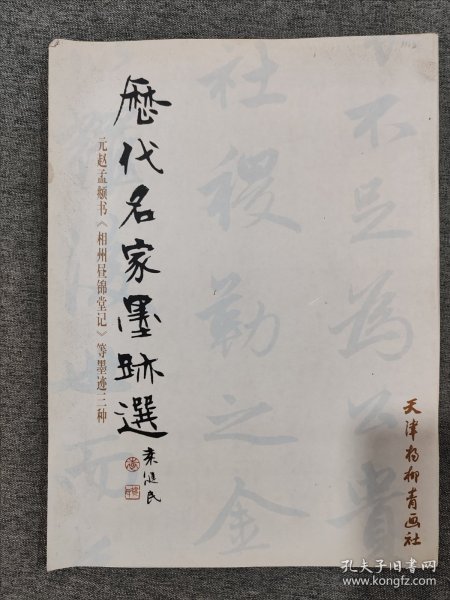 歷代名家墨跡選
元赵孟頫书《相州昼锦堂记》等墨迹三种
天津杨柳青画社
不足為公貴
社稷勒之金
而
孔夫子旧书网
www.kongfz.com